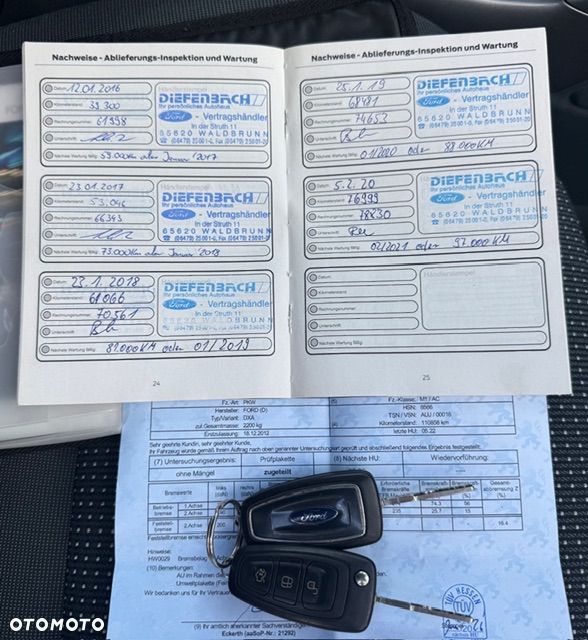 Nachweise - Ablieferungs-Inspektion und Wartung
Datum 12.01.2016
Kilometerstand 39.300
Rechnungsnummer 61998
Unterschrift
Nächste Wartung fällig: 59.000 Km oder Januar 2017
DIEFENBACH
Ihr persönliches Autohaus
Ford - Vertragshändler
In der Struth 11
65620 WALDBRUNN
☎ (06479) 25001-0, Fax (06479) 25001-20
Datum 23.01.2017
Kilometerstand 53.046
Rechnungsnummer 66343
Unterschrift
Nächste Wartung fällig: 73.000 Km oder Januar 2018
DIEFENBACH
Ihr persönliches Autohaus
Ford - Vertragshändler
In der Struth 11
65620 WALDBRUNN
☎ (06479) 25001-0, Fax (06479) 25001-20
Datum 23.1.2018
Kilometerstand 61066
Rechnungsnummer 70561
Unterschrift
Nächste Wartung fällig: 81.000 KM oder 01/2019
DIEFENBACH
Ihr persönliches Autohaus
Ford - Vertragshändler
In der Struth 11
65620 WALDBRUNN
24
Nachweise - Ablieferungs-Inspektion und Wartung
Datum 25.1.19
Kilometerstand 68481
Rechnungsnummer 74653
Unterschrift
Nächste Wartung fällig: 01/2020 oder 88.000 KM
DIEFENBACH
Ihr persönliches Autohaus
Ford - Vertragshändler
In der Struth 11
65620 WALDBRUNN
☎ (06479) 25001-0, Fax (06479) 25001-20
Datum 5.2.20
Kilometerstand 76999
Rechnungsnummer 78830
Unterschrift
Nächste Wartung fällig: 02/2021 oder 97.000 KM
DIEFENBACH
Ihr persönliches Autohaus
Ford - Vertragshändler
In der Struth 11
65620 WALDBRUNN
☎ (06479) 25001-0, Fax (06479) 25001-20
Datum
Kilometerstand
Rechnungsnummer
Unterschrift
Nächste Wartung fällig:
Händlerstempel
25
Fz.-Art: PKW
Hersteller: FORD (D)
Typ/Variant: DXA
zul.Gesamtmasse: 2200 kg
Erstzulassung: 18.12.2012
(5) Fz.-Klasse: M1 / AC
HSN: 8566
TSN / VSN: AUJ / 00016
(4) Kilometerstand: 110858 km
letzte HU: 05.22
Sehr geehrte Kundin, sehr geehrter Kunde,
Ihr Fahrzeug wurde gemäß Ihrem Auftrag nach oben genannter Untersuchungsart geprüft und abschließend folgendes Ergebnis festgestellt:
(7) Untersuchungsergebnis: Prüfplakette (8) Nächste HU: Wiedervorführung:
ohne Mängel zugeteilt
Bremswerte links rechts
Betriebs- 1.Achse
bremse 2.Achse
Feststell- 2.Achse
bremse
Feststellbremse
Hinweise:
HW0029 Bremsbelag
(10) Bemerkungen:
AU im Rahmen des
Umweltplakette
Wir bedanken uns für Ihr
(9) Ihr amtlich anerkannter Sachverständiger
Eckerth (aaSoP-Nr.: 21292)
Ford
TÜV HESSEN
TÜV
OTOMOTO